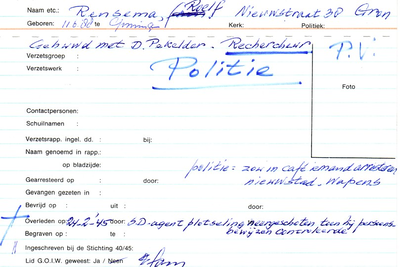 Naam etc.: Rensema, Roelf Nieuwstraat 38 Gron
Geboren: te Groningen Kerk: Politiek:
Gehuwd met D. Pekelder. Rechercheur P.V.
Verzetsgroep :
Verzetswerk : Politie
Foto
Contactpersonen:
Schuilnaam :
Verzetsrapp. ingel. dd. : bij:
Naam genoemd in rapp.:
op bladzijde: politie: zou in café iemand arresteren
Gearresteerd op : door: nieuwstad. Wapens
Gevangen gezeten in :
Bevrijd op : uit : door:
Overleden op: 24-2-'45 door: SD-agent plotseling neergeschoten toen hij persoons-
Begraven op : te : bewijzen controleerde
Ingeschreven bij de Stichting 40/45:
Lid G.O.I.W. geweest: Ja / Neen